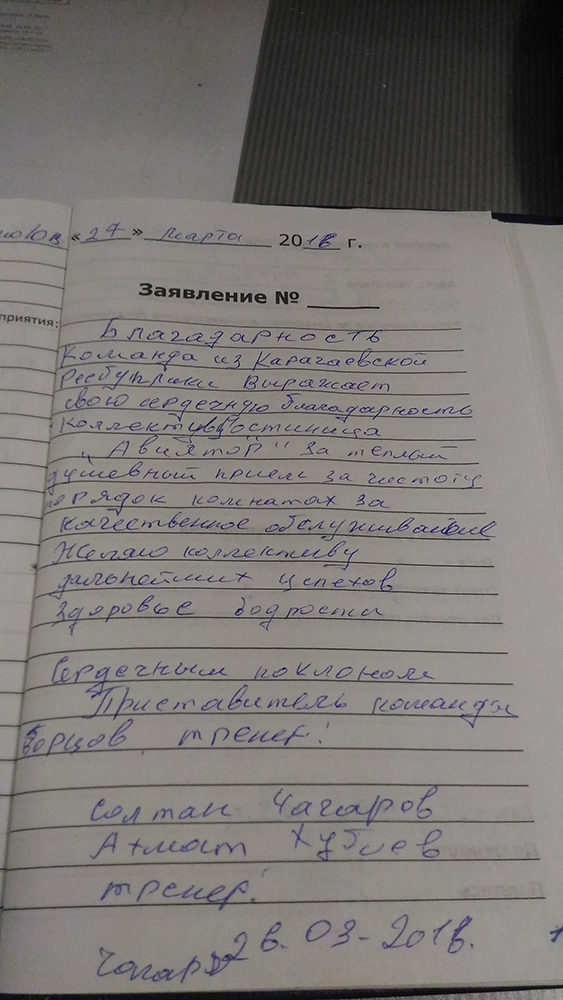 «27» марта 2018 г.
Заявление № ______
приятия:
Благадарность
Команда из Карачаевской
Ресбуплики Выражает
свою сердечную благадарность
Коллективу гостиница
"Авиятор" за теплый
душевный прием за чистоту
порядок комнатах за
качественное обслуживание
Желаю коллективу
дальнейших успехов
здоровье бодрости
Сердечным поклоном
Приставитель команды
борцов тренер!
Солтан Чагаров
Ахмат Хубиев
тренер!
28.03-2018.